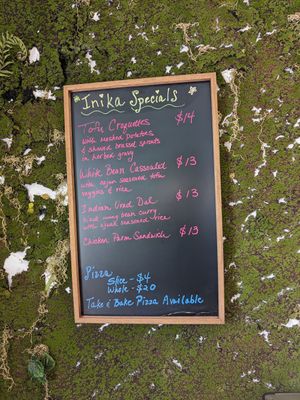 Inika Specials
Tofu Croquettes $14
with mashed potatoes
& shaved brussel sprouts
in herbed gravy
White Bean Cassoulet $13
with vegan seasoned tofu
veggies & rice
Indian Urad Dal $13
black mung bean curry
with ajwad seasoned rice
Chicken Parm Sandwich $13
Pizza
Slice - $4
Whole - $20
Take & Bake Pizza Available